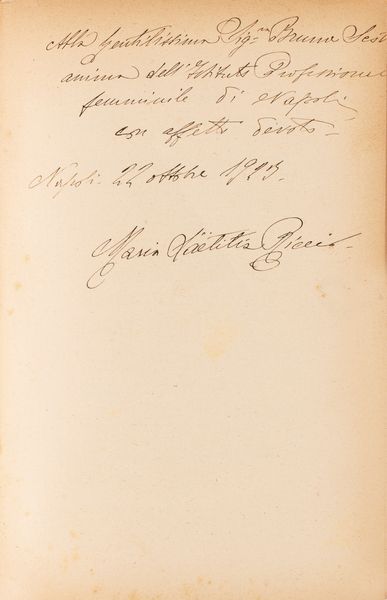 Alla gentilissima Sig.na Bruna
anima dell'Istituto Professional
femminile di Napoli
con affetto devoto -
Napoli. 22 ottobre 1923.
Maria Laetitia Riccio -